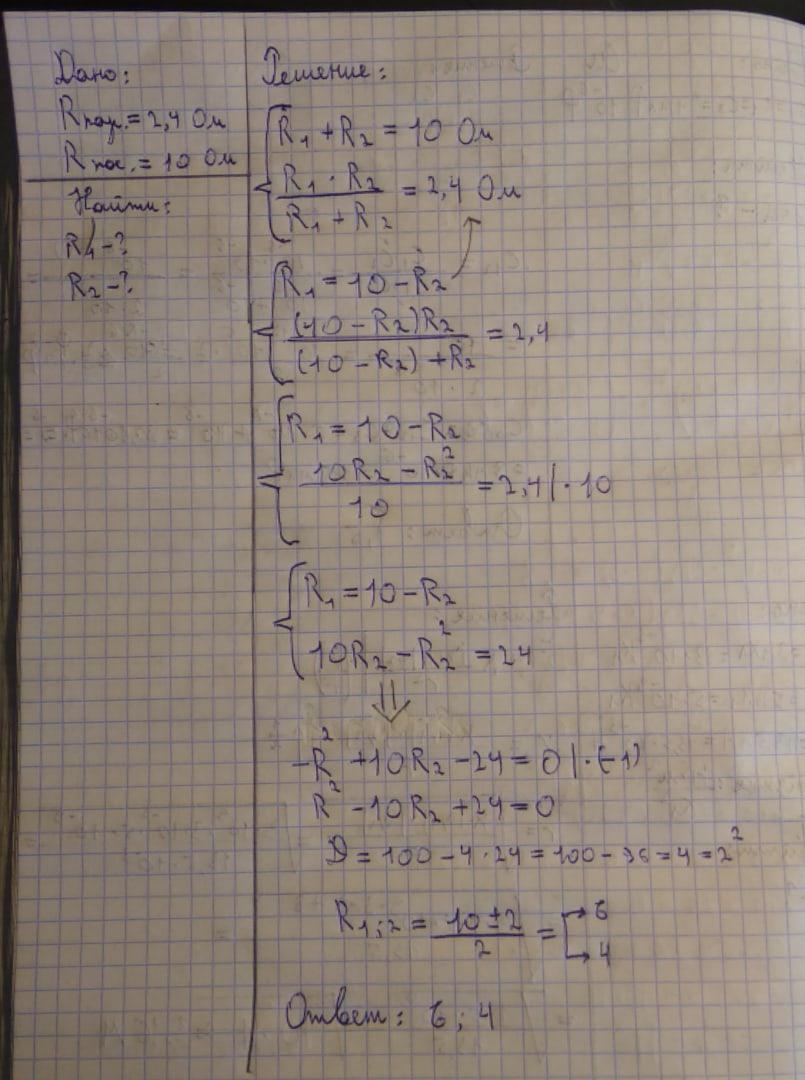 Дано:
Rпар. = 2,4 Ом
Rпос. = 10 Ом
Найти:
R1 - ?
R2 - ?
Решение:
R1 + R2 = 10 Ом
R1 · R2
= 2,4 Ом
R1 + R2
R1 = 10 - R2
(10 - R2)R2
= 2,4
(10 - R2) + R2
R1 = 10 - R2
10R2 - R2²
= 2,4 | · 10
10
R1 = 10 - R2
10R2 - R2² = 24
⇓
-R² + 10R2 - 24 = 0 | · (-1)
R² - 10R2 + 24 = 0
D = 100 - 4 · 24 = 100 - 96 = 4 = 2²
R1;2 = 10 ± 2
2
= 6
4
Ответ: 6; 4